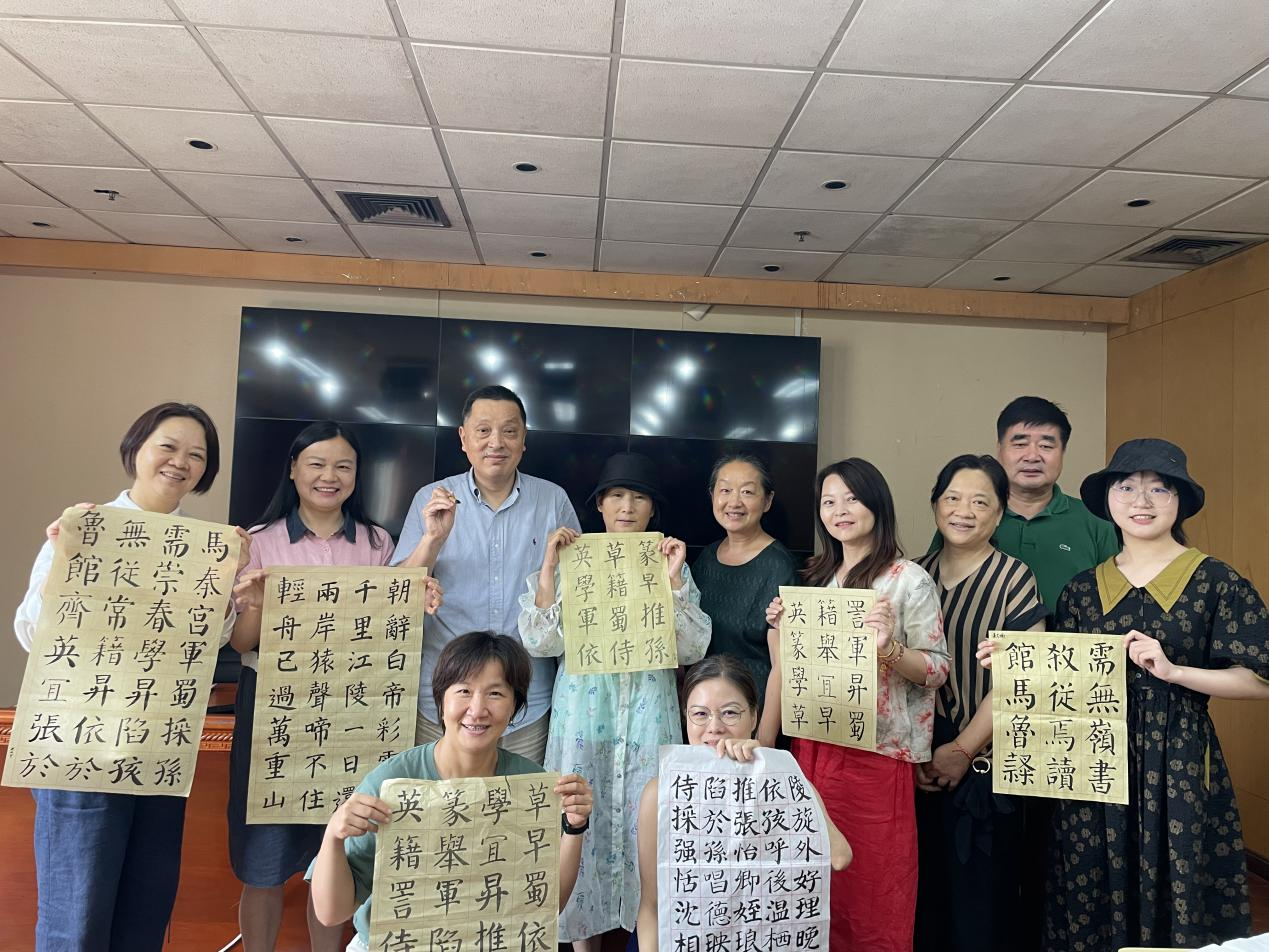 馬秦宮軍蜀採孫
需崇春學昇陷孩
無従常籍昇依於
魯館齊英宜張於
朝辭白帝彩
千里江陵一日還
兩岸猿聲啼不住
輕舟已過萬重山
篆早推孫
草籍蜀侍
英學軍依
詈軍昇蜀
籍舉宜早
英篆學草
需無嶺書
敘従焉讀
館馬魯
草早蜀依
學宜昇推
篆舉軍陷
英籍詈侍
陵旋外好理晚
依孩呼後温栖
推張怡卿姪琅
陷於孫唱德映
侍採强恬沈相